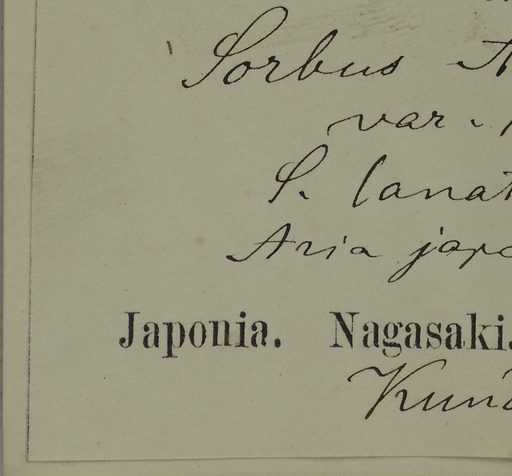 Sorbus A
var.
S. lanat
Aria japo
Japonia. Nagasaki.
Kun